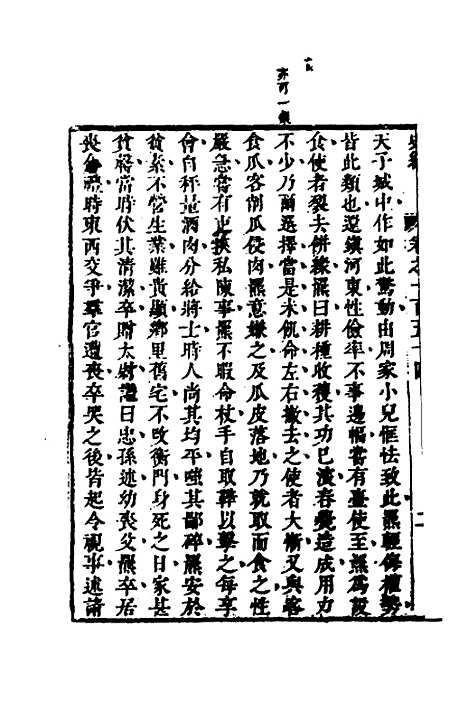 亦可一傳
史緯
卷之一百五十四
二
天子城中作如此驚動由周家小兒恇怯致此羆輕侮權勢
皆此類也還鎮河東性儉率不事邊幅嘗有臺使至羆為設
食使者裂去併緣羆曰耕種收穫其功已深舂爨造成用力
不少乃爾選擇當是未飢命左右撤去之使者大慚又與客
食瓜客削瓜侵肉羆意嫌之及瓜皮落地乃就取而食之性
嚴急嘗有吏挾私陳事羆不暇命杖手自取鞾以擊之每享
會自秤量酒肉分給將士時人尚其均平嗤其鄙碎羆安於
貧素不營生業雖貴顯鄉里舊宅不改衡門身死之日家甚
貧窶當時伏其清潔卒贈太尉諡曰忠孫述幼喪父羆卒居
喪合禮時東西交爭羣官遭喪卒哭之後皆起令視事述請